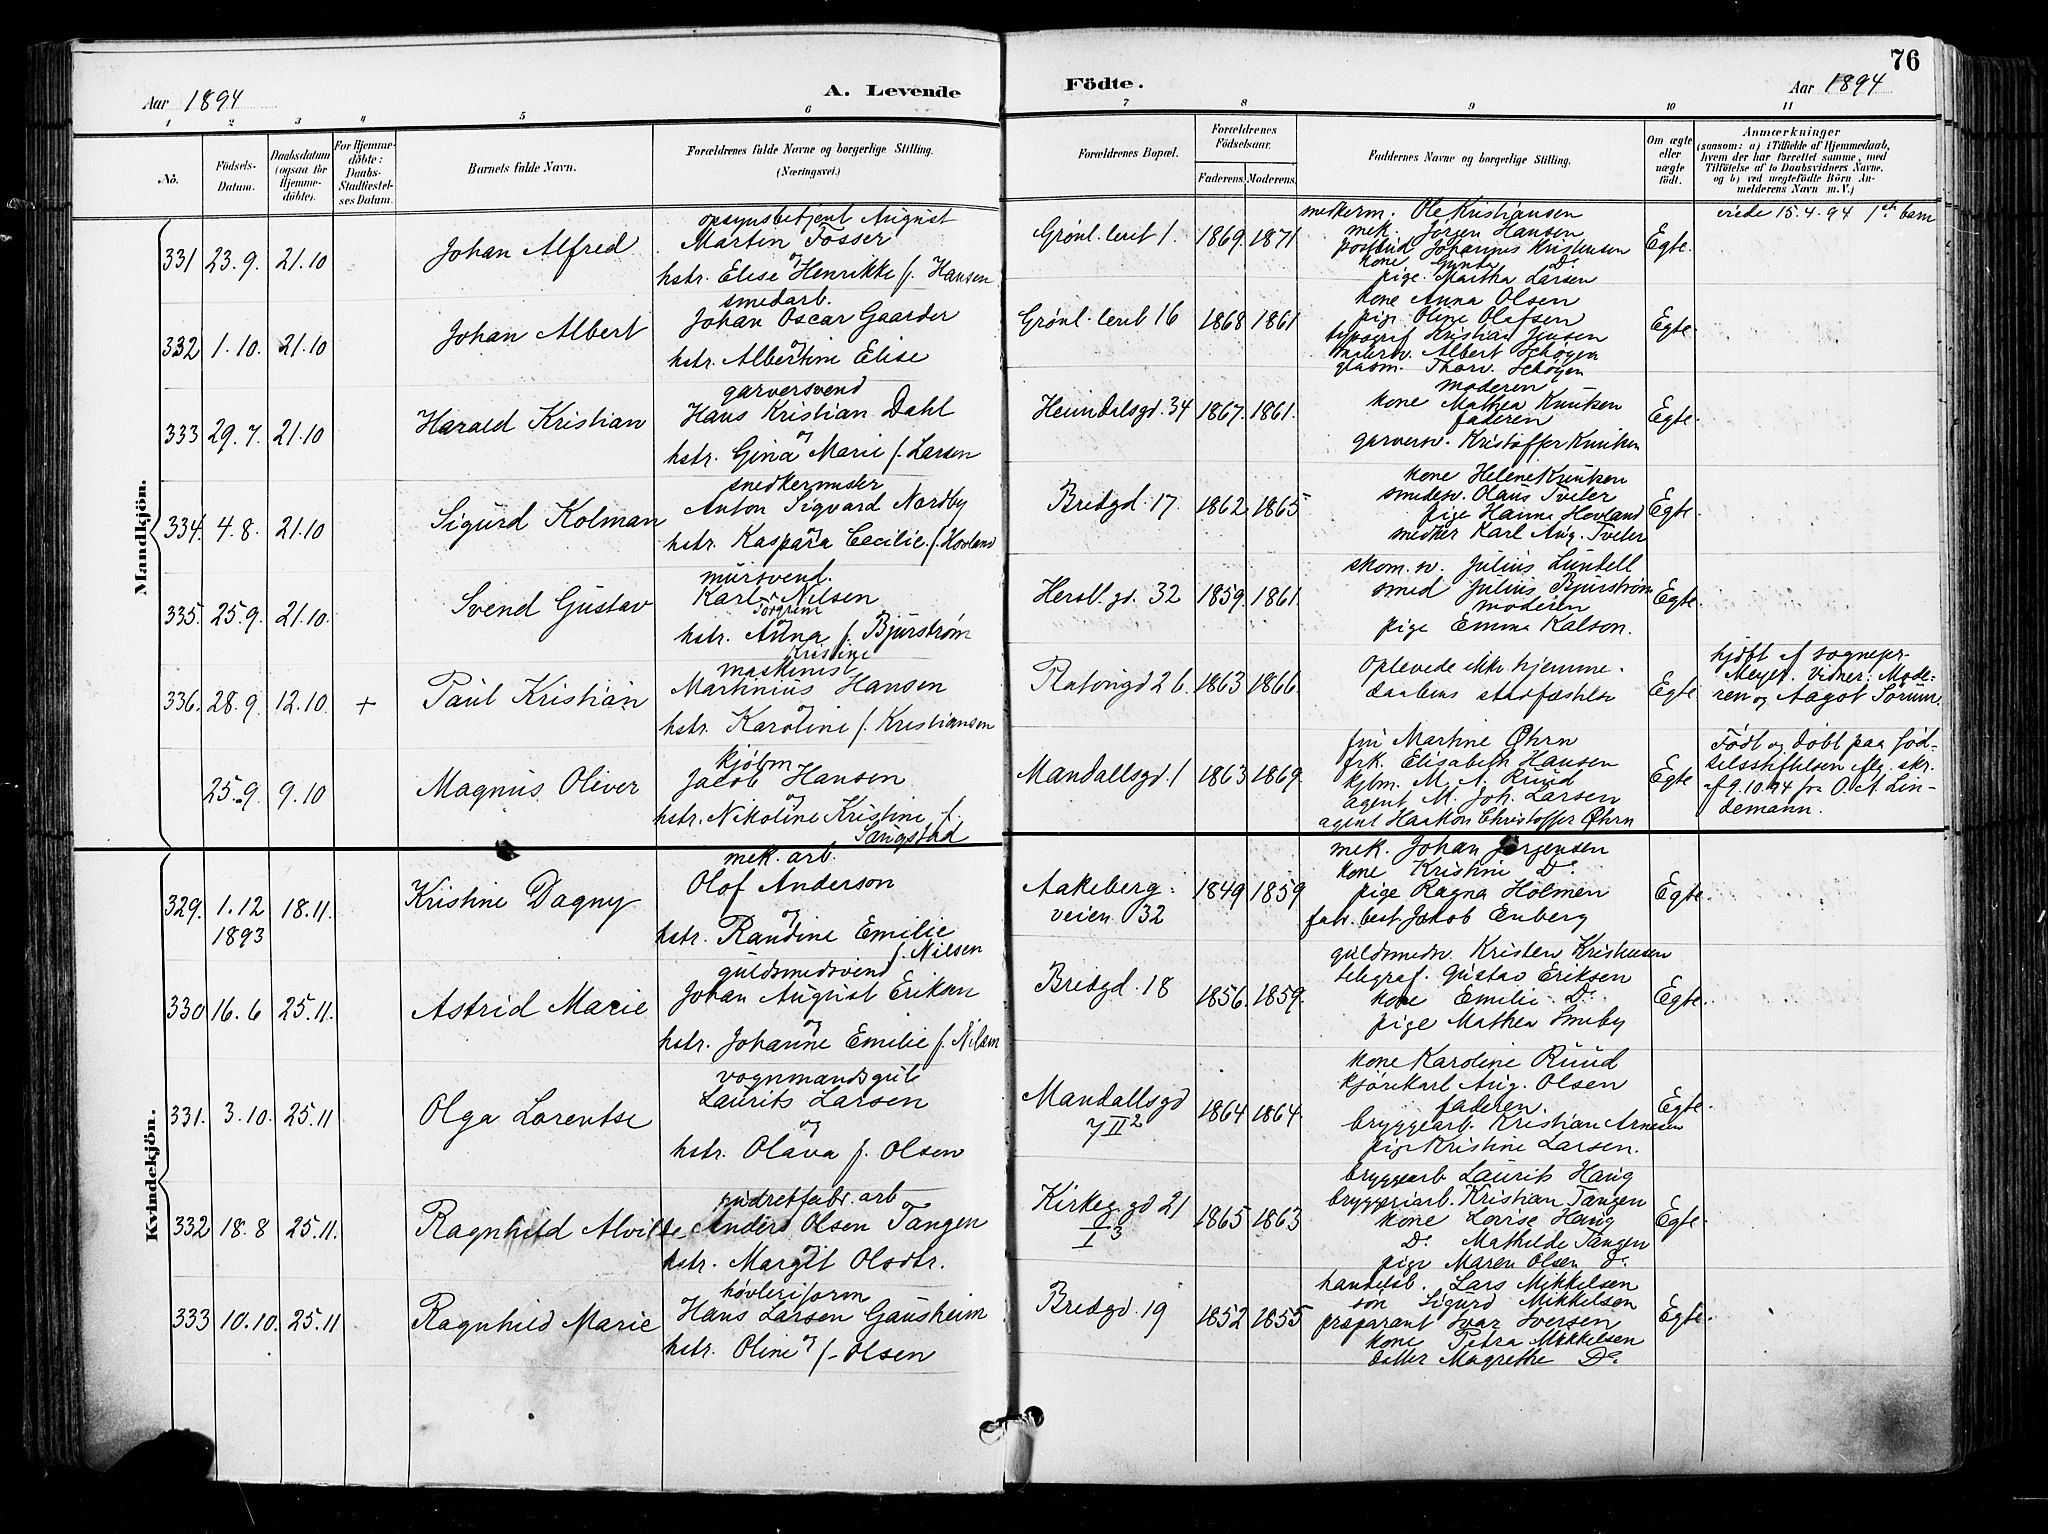 76
Aar 1894
A. Levende
Födte.
Aar 1894
1 2 3 4 5 6 7 8 9 10 11
No.
Födsels-Datum.
Daabsdatum (ogsaa for Hjemmedöbte).
For Hjemmedöbte: Daabs-Stadfæstelses Datum.
Barnets fulde Navn.
Forældrenes fulde Navne og borgerlige Stilling. (Næringsvei.)
Forældrenes Bopæl.
Forældrenes Födselsaar.
Faderens. Moderens.
Faddernes Navne og borgerlige Stilling.
Om ægte eller uægte födt.
Anmærkninger
(saasom: a) i Tilfælde af Hjemmedaab, hvem der har forrettet samme, med Tilföielse af to Daabsvidners Navne. og b) ved uegtefödte Börn Anmelderens Navn m. V.)
Mandkjön.
331 23.9. 21.10
Johan Alfred
opsynsbetjent August
Martin Fosser
og
hstr. Elise Henrikke f. Hansen
Grönl. leret 1. 1869. 1871
snedkerm. Ole Kristiansen
mek. Jörgen Hansen
postbud Johannes Kristensen
kone Gunda Do
pige Martha Larsen
Egte.
viede 15.4.94 1ste barn
332 1.10. 21.10
Johan Albert
smedarb.
Johan Oscar Gaarder
og
hstr. Albertine Elise
Grönl. leret 16 1868 1861
kone Anna Olsen
pige Oline Olafsen
typograf Kristian Jensen
malersv. Albert Schøyen
glasm. Thorv. Schøyen
Egte
333 29.7. 21.10
Harald Kristian
garversvend
Hans Kristian Dahl
og
hstr. Gina Marie f. Larsen
Heimdalsgd. 34 1867. 1861.
moderen
kone Mathea Knutsen
faderen
garversv. Kristoffer Knutsen
Egte.
334. 4.8. 21.10
Sigurd Kolman
snedkermester
Anton Sigvard Nordby
og
hstr. Kaspara Cecilie f. Hovland
Bredgd. 17. 1862. 1865
kone Helene Knutsen
smedsv. Olaus Tveter
pige Hanna Hovland
snedker Karl Aug. Tveter
Egte.
335. 25.9. 21.10.
Svend Gustav
mursvend.
Karl Nilsen
Torgrem
og
hstr. Anna f. Bjurström
Kristine
Hersl. gd. 32 1859. 1861.
skom. sv. Julius Lundell
smed Julius Bjurström
moderen
pige Emma Kalson.
Egte.
336. 28.9. 12.10. +
Paul Kristian
maskinist
Martinius Hansen
og
hstr. Karoline f. Kristiansen
1863 1866
oplevede ikke hjemme-
daabens stadfæstelse
Egte
hjdöbt af sognepr.
Meyer. Vidner: Mode-
ren og Aagot Sörum.
25.9. 9.10
Magnus Oliver
kjöbm.
Jacob Hansen
og
hstr. Nikoline Kristine f.
Saugstad
Mandallsgd. 1 1863 1869.
fru Martine Øhrn
frk. Elisabeth Hansen
kjbm. M. A. Ruud
agent M. Joh. Larsen
agent Haakon Christoffer Øhrn
Egte
Födt og döbt paa Föd-
selsstiftelsen flg. skr.
af 9.10.94 fra O. A. Lin-
demann.
Kvindekjön.
329. 1.12 1893 18.11.
Kristine Dagny
mek. arb.
Olof Anderson
og
hstr. Randine Emilie
f. Nilsen
Aakeberg-
veien 32
1849 1859
mek. Johan Jörgensen
kone Kristine Do
pige Ragna Holmen
fabr. best. Jakob Enberg
Egte.
330 16.6 25.11.
Astrid Marie
guldsmedsvend
Johan August Eriksen
og
hstr. Johanne Emilie f. Nilsen
Bredgd. 18 1856. 1859.
guldsmedsv. Kristen Kristensen
telegraf. Gustav Eriksen
kone Emilie Do
pige Mathea Smeby
Egte.
331. 3.10. 25.11
Olga Lorentse
vognmandsgut
Laurits Larsen
og
hstr. Olava f. Olsen
Mandallsgd
7 II 2
1864 1864.
kone Karoline Ruud
kjörekarl Aug. Olsen
faderen.
bryggearb. Kristian Arnesen
pige Kristine Larsen.
Egte.
332 18.8 25.11.
Ragnhild Alvilde
arb
Anders Olsen Tangen
og
hstr. Margit Olsdtr.
Kirkeg. gd 21
I 3
1865 1863
bryggearb Laurits Haug
bryggeriarb. Kristian Tangen
kone Lovise Haug
Do Mathilde Tangen
pige Maren Olsen Do
Egte.
333 10.10. 25.11
Ragnhild Marie
høvleriform
Hans Larsen Gausheim
og
hstr. Oline f. Olsen
Bredgd. 19 1852 1855
handelsb. Lars Mikkelsen
sön Sigurd Mikkelsen
præparant Ivar Iversen
kone Petra Mikkelsen
datter Magrethe Do.
Egte.